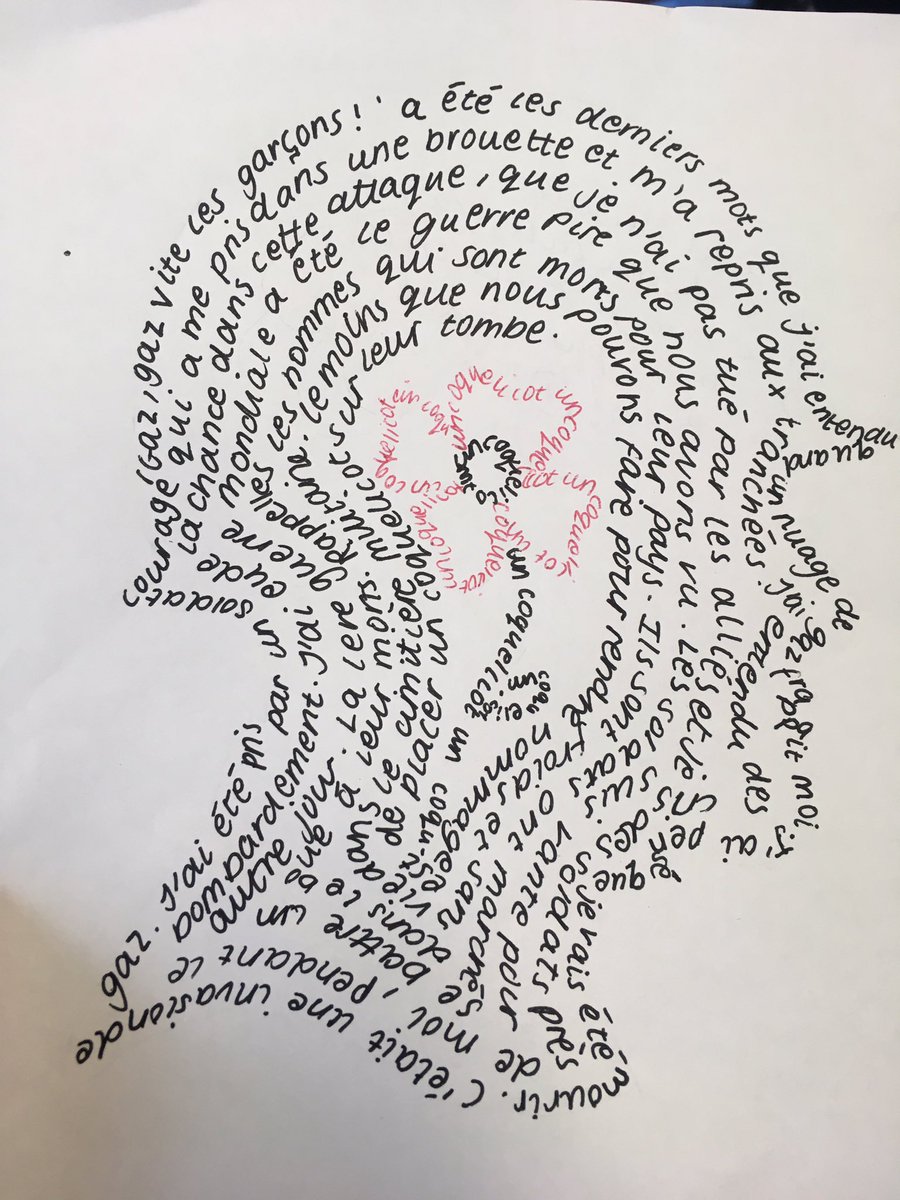 'Gaz, gaz vite les garçons!' a été les derniers mots que j'ai entendu
quand un nuage de
gaz frappit moi.
J'ai
pensé
que je vais été
mourir.
C'était une invasion de
gaz. J'ai été pris
par un soldat
courage qui a me pris dans une brouette et m'a repris aux tranchées. J'ai entendu des
des soldats près de moi, pendant le
bombardement. J'ai eu de
la chance dans cette attaque, que je n'ai pas tué par les alliés et je
suis vante pour battre un
autre jour. La 1ere guerre
mondiale a été le guerre pire que nous avons vu. Les soldats
ont marchés dans le boue à leur morts. Rappelles
les hommes qui sont morts pour leur pays. Ils sont
froids et sans vie dans le cimitière militaire.
le moins que nous pouvons faire pour rendre
hommage est de placer un coquelicot
sur leur tombe.
un coquelicot un coquelicot un coquelicot un coquelicot
un coquelicot
un coquelicot